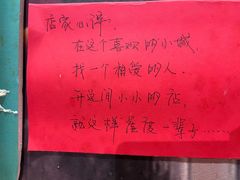 店家心语:
在这个喜欢的小城,
找一个相爱的人.
开这间小小的店,
就这样蹉度一辈子......